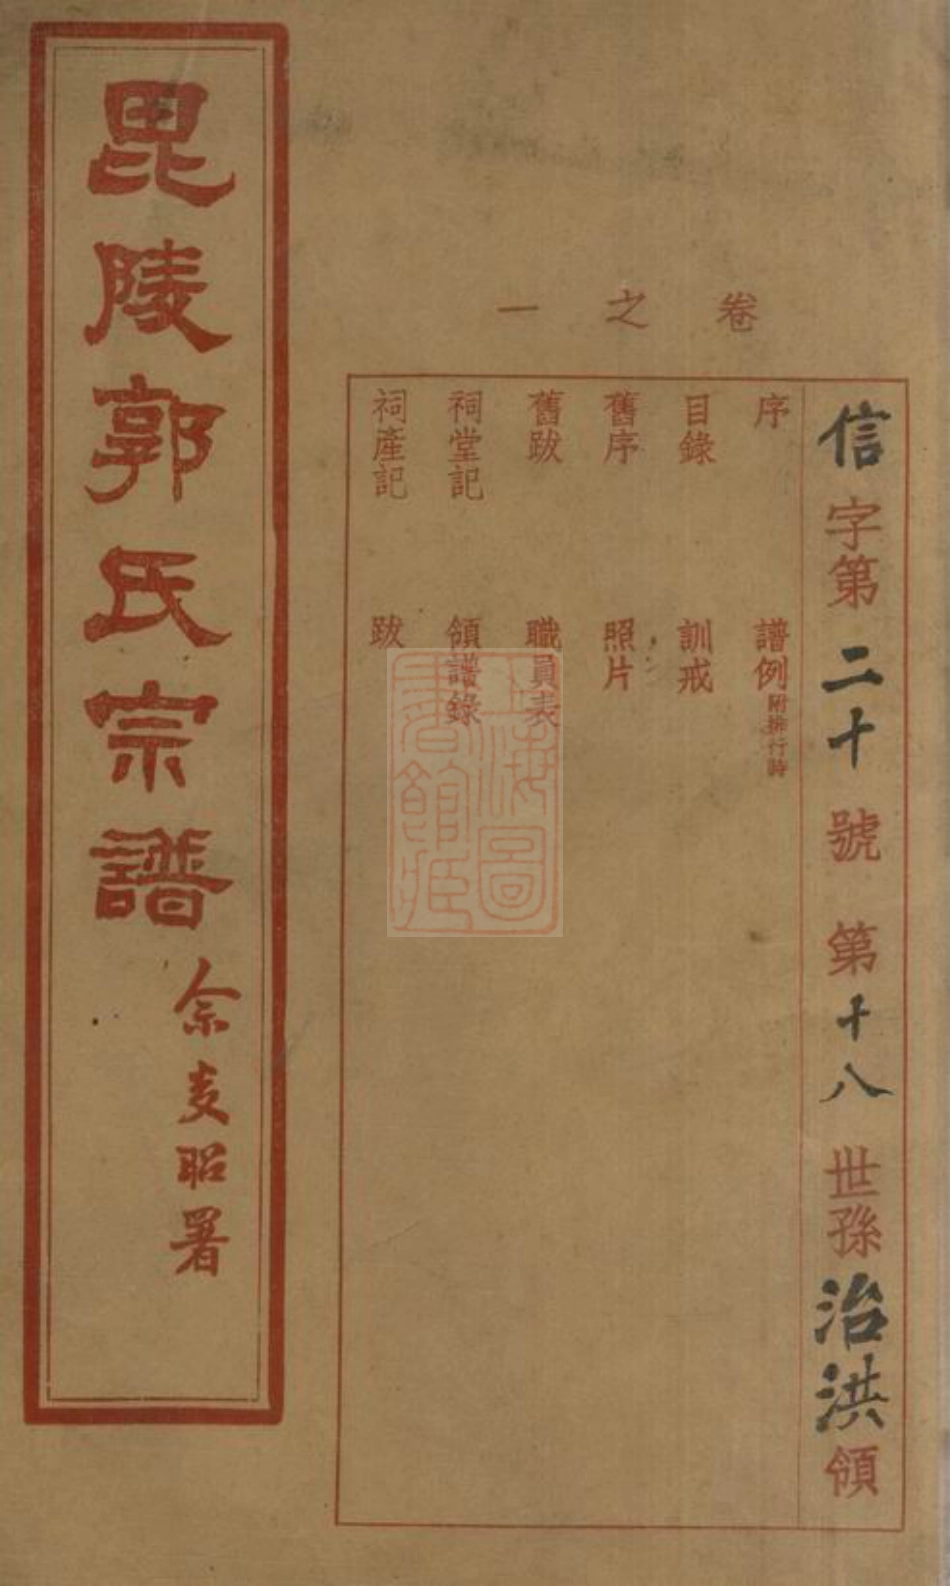 卷之一
信字第二十號 第十八世孫治洪領
序 譜例附排行詩
目錄 訓戒
舊序 照片
舊跋 職員表
祠堂記 領譜錄
祠產記 跋
毘陵郭氏宗譜
余支昭署
上海圖書館藏